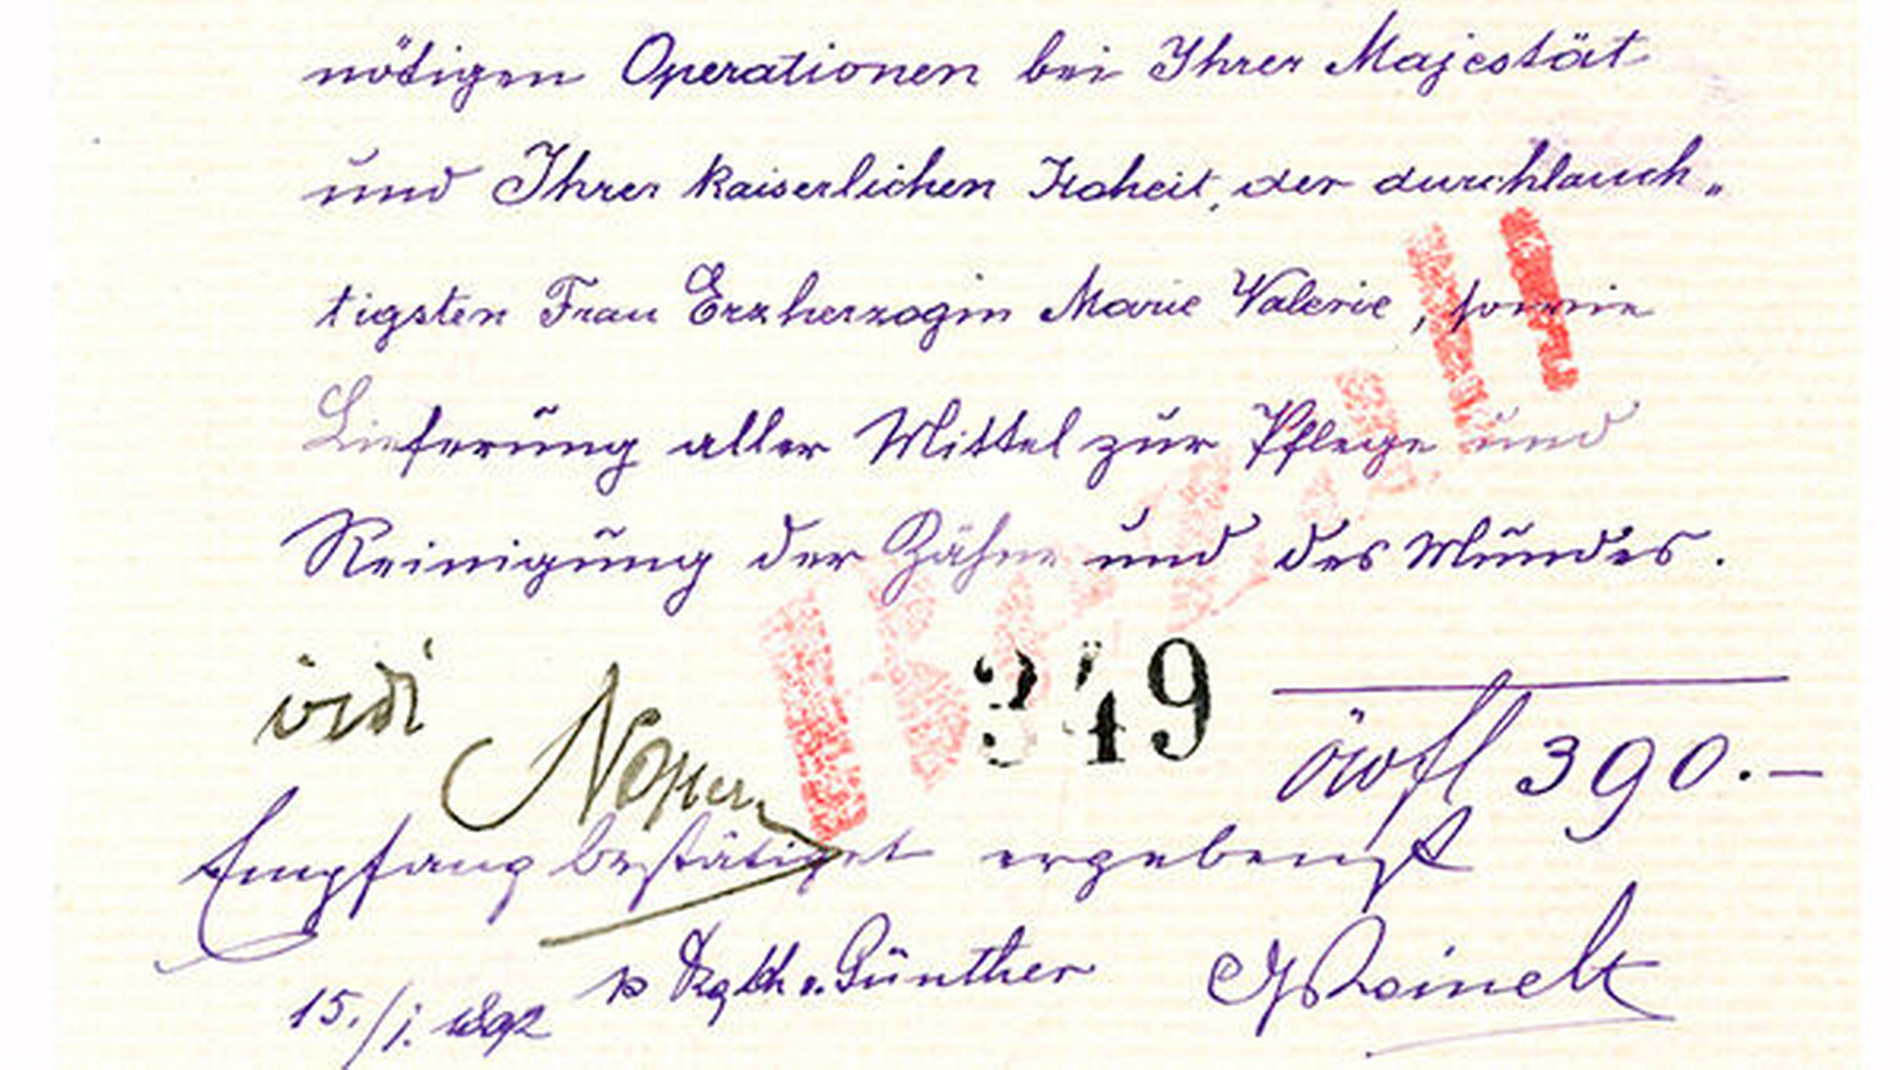 nötigen Operationen bei Ihrer Majestät
und Ihrer kaiserlichen Hoheit, der durchlauch„
tigsten Frau Erzherzogin Marie Valerie, sowie
Lieferung aller Mittel zur Pflege und
Reinigung der Zähne und des Mundes.
vidi
349
öwfl 390.—
Empfang bestätiget ergebenst
15./1. 1892 Günther